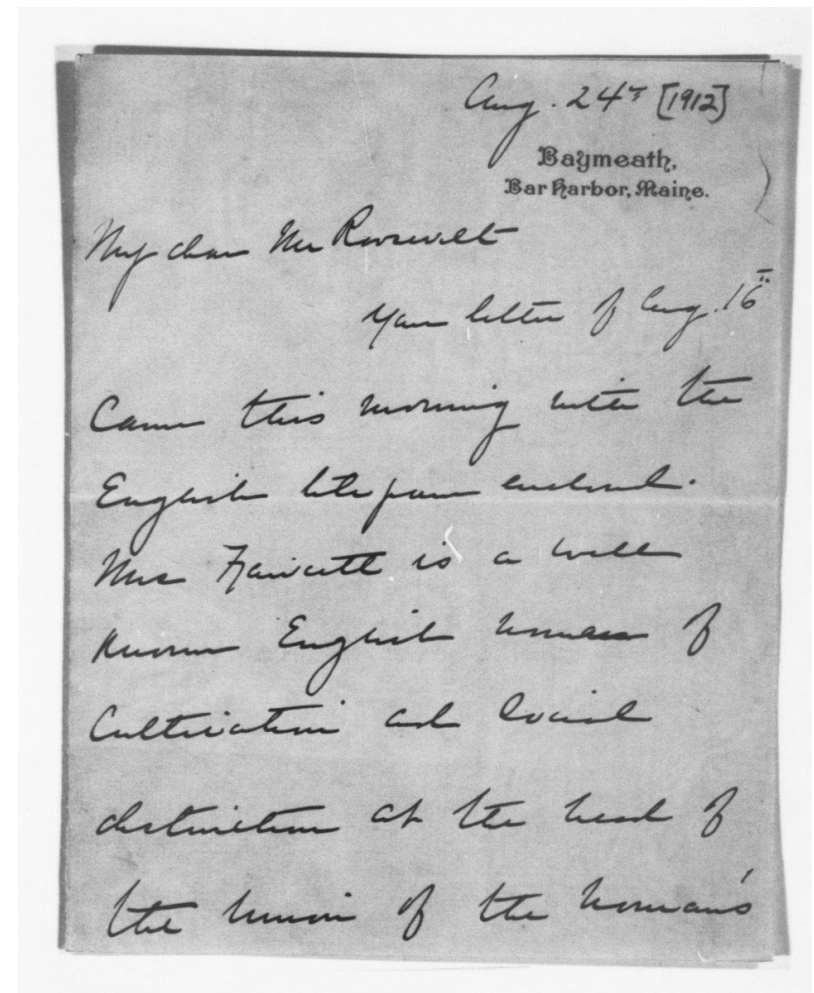 Aug. 24th [1912]
Baymeath,
Bar Harbor, Maine.
My dear Mr Roosevelt
Your letter of Aug. 16th
Came this morning with the
English enclosed.
Mrs Fawcett is a well
known English woman of
Cultivation and Social
distinction at the head of
the Union of the Woman's